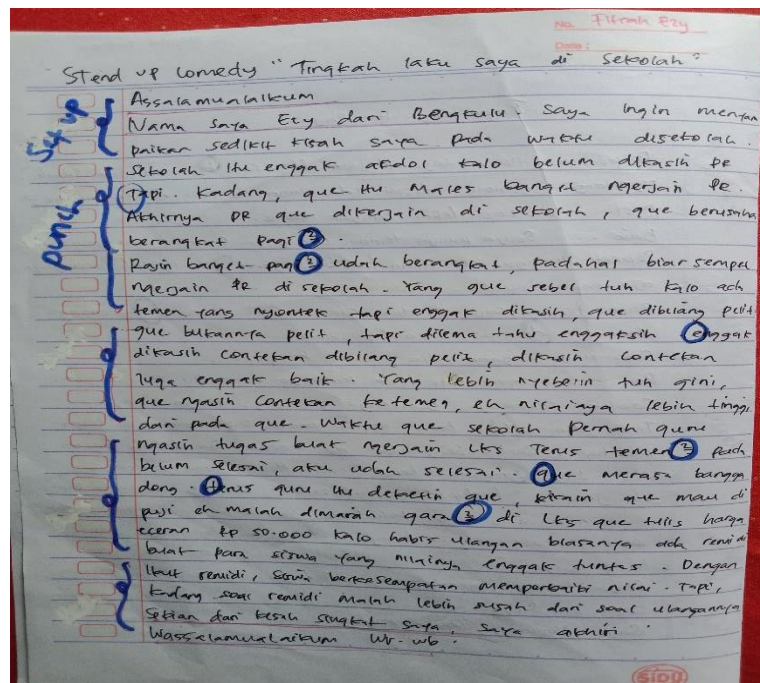 No. Fitrah Ezy
Date:
Stend up comedy "Tingkah laku saya di sekolah"
Assalamualaikum
Nama saya Ezy dari Bengkulu. Saya ingin menyam
paikan sedikit kisah saya pada waktu disekolah.
Sekolah itu enggak afdol kalo belum dikasih PR
Tapi. Kadang, que itu males banget ngerjain PR.
Akhirnya PR que dikerjain di sekolah, que berusaha
berangkat pagi 2.
Rajin banget pagi 2 udah berangkat, padahal biar sempet
ngerjain PR di sekolah. Yang que sebel tuh kalo ach
temen yang nyontek tapi enggak dikasih, que dibilang pelit
que bukannya pelit, tapi dilema tahu enggaksih enggak
dikasih contekan dibilang pelit, dikasih contekan
juga enggak baik. Yang lebih nyebelin tuh gini,
que ngasih contekan ketemen, eh nilainya lebih tinggi
dari pada que. Waktu que sekolah pernah guru
ngasih tugas buat ngerjain LKS Terus temen 2 pada
belum selesai, aku udah selesai. que merasa bangga
dong. terus guru itu deketin que, kirain que mau di
puji eh malah dimarah gara 2 di LKS que tulis harga
eceran Rp 50.000 kalo habis ulangan biasanya ada remidi
buat para siswa yang nilainya enggak tuntas. Dengan
ikut remidi, siswa berkesempatan memperbaiki nilai. Tapi,
kadang soal remidi malah lebih susah dari soal ulangannya
Sekian dari kisah singkat saya, saya akhiri
Wassalamualaikum Wr. wb.
Set up
punch
SIDU